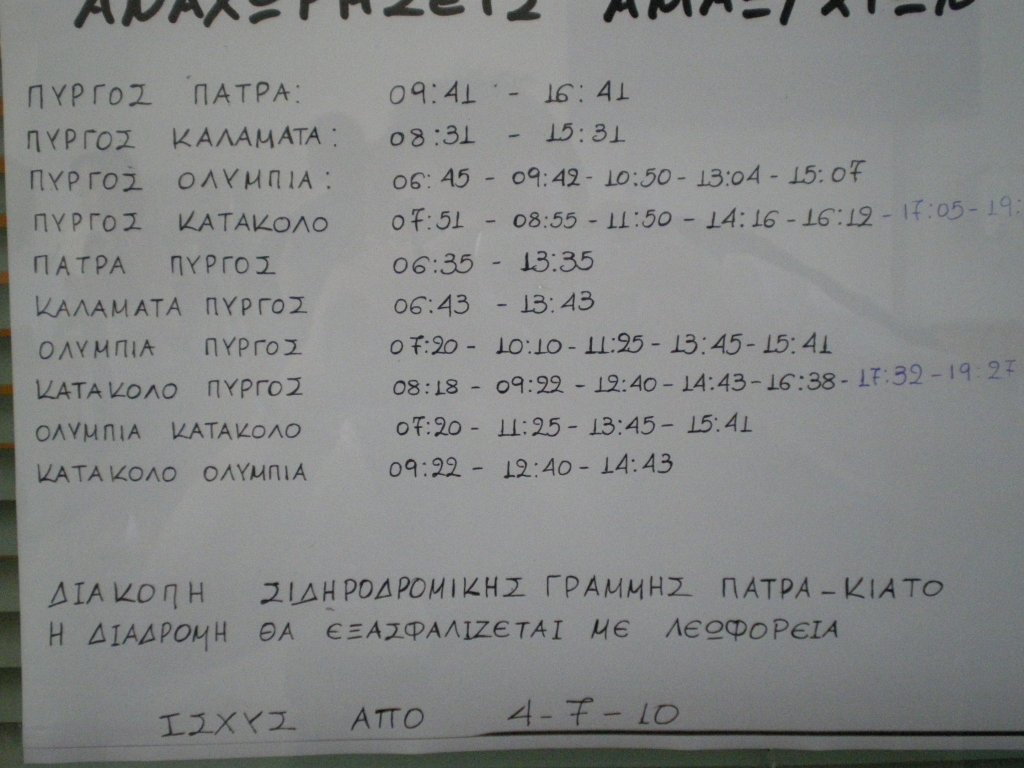 ΑΝΑΧΩΡΗΣΕΙΣ ΑΜΑΞ/ΧΙΩΝ
ΠΥΡΓΟΣ ΠΑΤΡΑ: 09:41 - 16:41
ΠΥΡΓΟΣ ΚΑΛΑΜΑΤΑ: 08:31 - 15:31
ΠΥΡΓΟΣ ΟΛΥΜΠΙΑ: 06:45 - 09:42 - 10:50 - 13:04 - 15:07
ΠΥΡΓΟΣ ΚΑΤΑΚΟΛΟ 07:51 - 08:55 - 11:50 - 14:16 - 16:12 - 17:05 - 19:
ΠΑΤΡΑ ΠΥΡΓΟΣ 06:35 - 13:35
ΚΑΛΑΜΑΤΑ ΠΥΡΓΟΣ 06:43 - 13:43
ΟΛΥΜΠΙΑ ΠΥΡΓΟΣ 07:20 - 10:10 - 11:25 - 13:45 - 15:41
ΚΑΤΑΚΟΛΟ ΠΥΡΓΟΣ 08:18 - 09:22 - 12:40 - 14:43 - 16:38 - 17:32 - 19:27
ΟΛΥΜΠΙΑ ΚΑΤΑΚΟΛΟ 07:20 - 11:25 - 13:45 - 15:41
ΚΑΤΑΚΟΛΟ ΟΛΥΜΠΙΑ 09:22 - 12:40 - 14:43
ΔΙΑΚΟΠΗ ΣΙΔΗΡΟΔΡΟΜΙΚΗΣ ΓΡΑΜΜΗΣ ΠΑΤΡΑ - ΚΙΑΤΟ
Η ΔΙΑΔΡΟΜΗ ΘΑ ΕΞΑΣΦΑΛΙΖΕΤΑΙ ΜΕ ΛΕΩΦΟΡΕΙΑ
ΙΣΧΥΣ ΑΠΟ 4-7-10